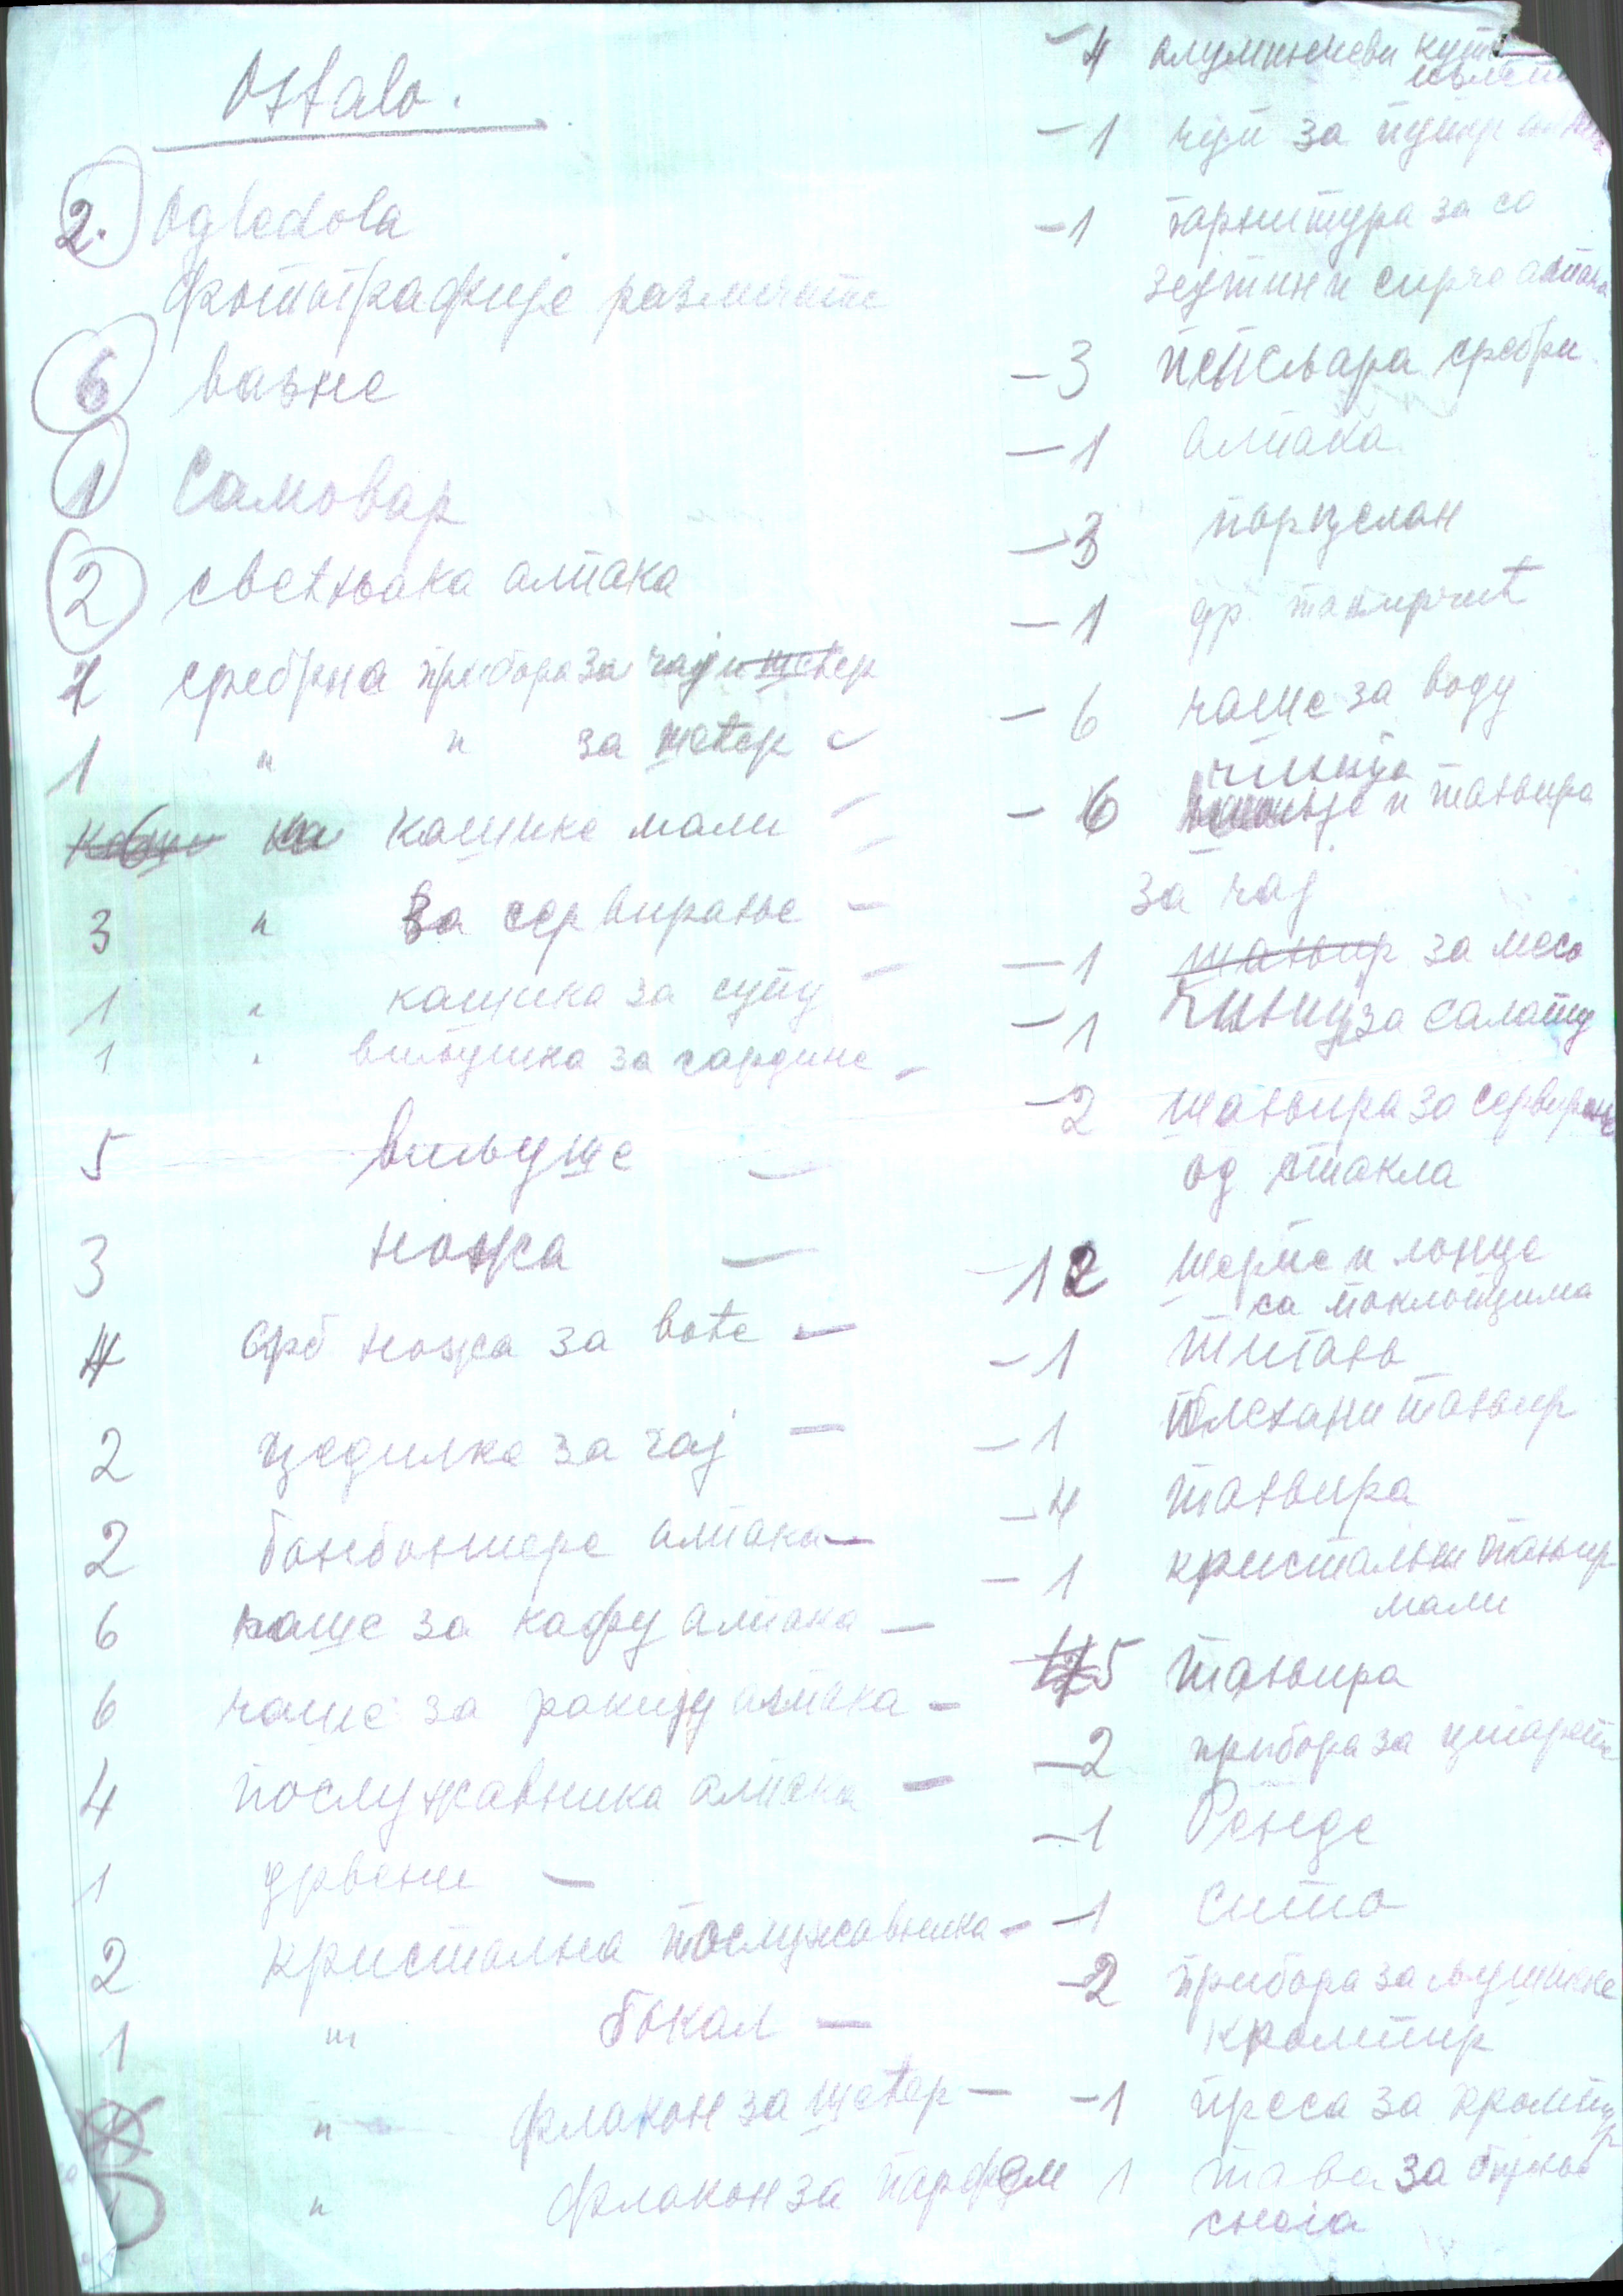 Ostalo.
2. Ogledola
фотографије различите
6 вазне
1 Самовар
2 свећњака алпака
2 сребрна прибора за чај и шећер
1 " " за шећер -
ка кашике мали -
3 " За сервирање -
1 " кашика за супу -
1 " виљушка за сардине -
5 виљуше -
3 ножа -
4 срб ножа за воће -
2 цедилке за чај -
2 бонбониере алпака -
6 чаше за кафу алпака -
6 чаше за ракију алпака -
4 послужавника алпака -
1 дрвени -
2 кристална послужавника -
1 " бокал -
" флакон за шећер -
" флакон за парфем
- 4 алуминиеви
- 1 за путер
- 1 гарнитура за со
зејтин и сирће алпака
- 3 пепељара сребрн
- 1 алпака
- 3 порцелан
- 1 др. тањирчић
- 6 чаше за воду
чинија
- 6 и тањира
за чај
- 1 тањир за месо
- 1 Чинију за салату
- 2 тањира за сервирање
од стакла
- 12 шерпе и лонце
са поклопцима
- 1 тигањ
- 1 плехани тањир
- 4 тањира
- 1 кристални тањир
мали
5 тањира
- 2 прибора за цигарете
- 1 Ренде
- 1 сито
- 2 прибора за љуштење
кромпир
- 1 преса за кромпир
1 тава за
снега